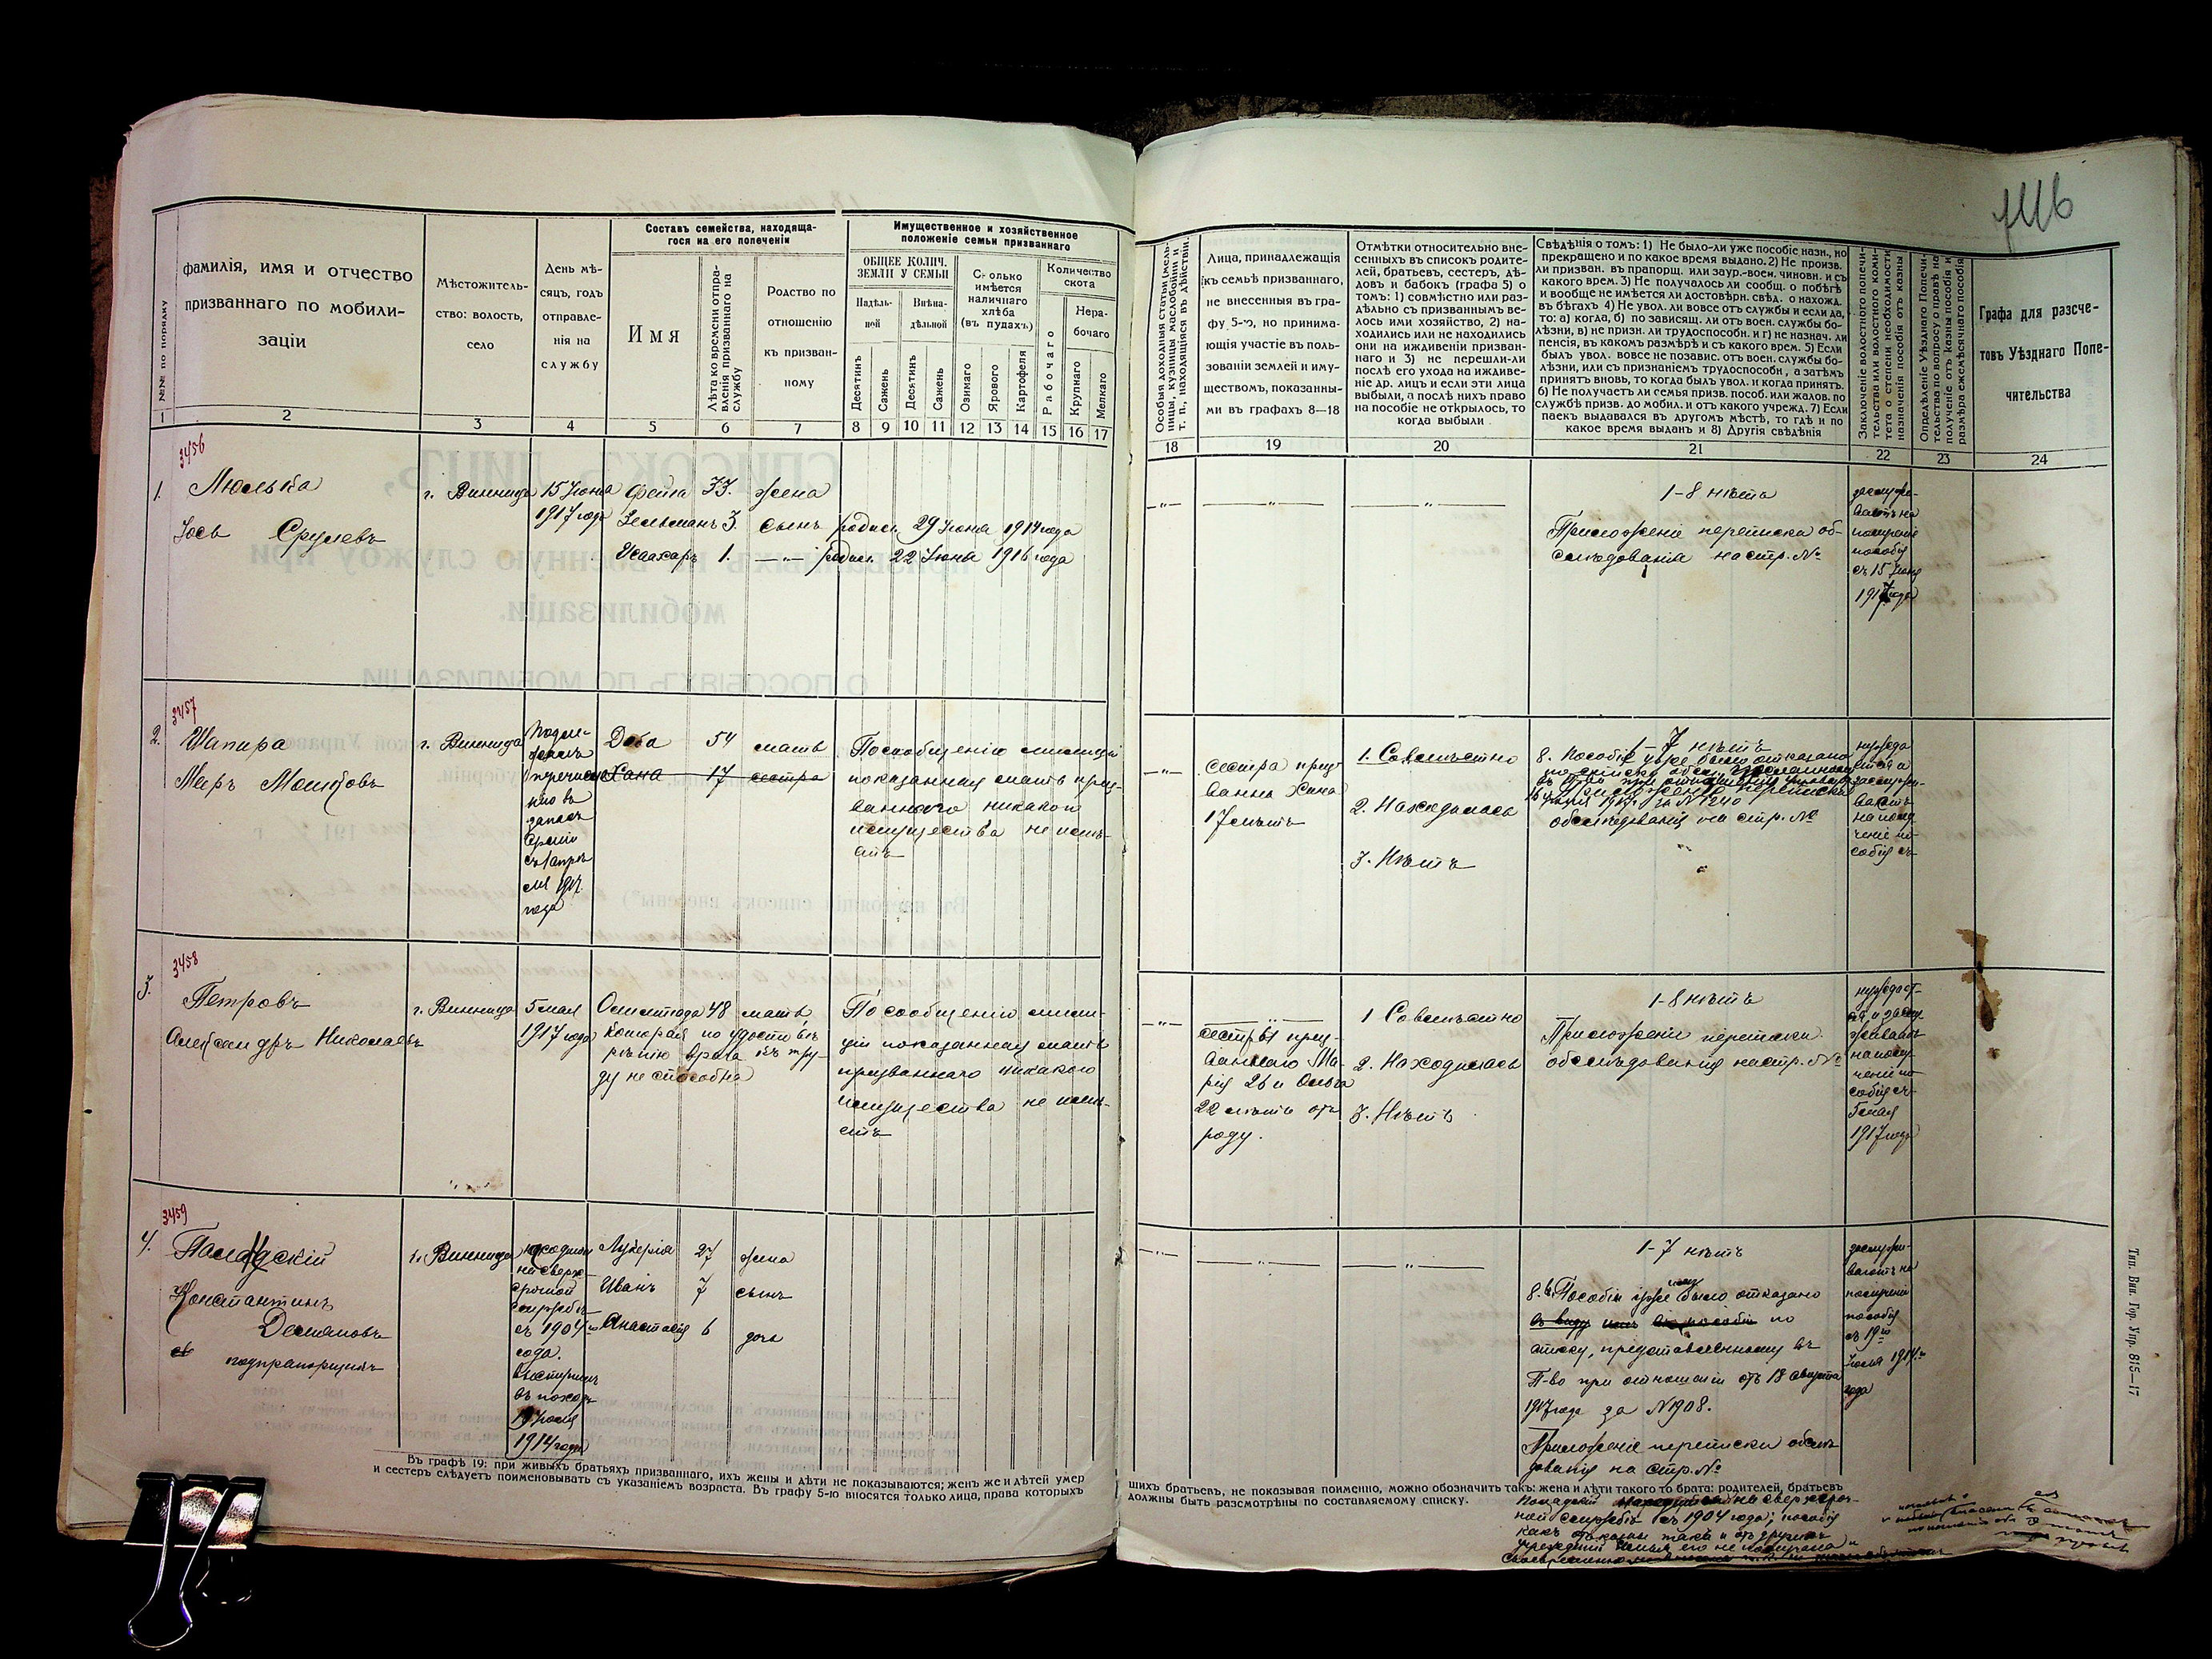 №№ по порядку
фамилія, имя и отчество
призваннаго по мобили-
заціи
Мѣстожитель-
ство: волость,
село
День мѣ-
сяцъ, годъ
отправле-
нія на
службу
Составъ семейства, находяща-
гося на его попеченіи
Имя
Лѣта ко времени отпра-
вленія призваннаго на
службу
Родство по
отношенію
къ призван-
ному
Имущественное и хозяйственное
положеніе семьи призваннаго
ОБЩЕЕ КОЛИЧ.
ЗЕМЛИ У СЕМЬИ
Надѣль-
ной
Внѣна-
дѣльной
Десятинъ
Сажень
Десятинъ
Сажень
Сколько
имѣется
наличнаго
хлѣба
(въ пудахъ)
Озимаго
Ярового
Картофеля
Количество
скота
Рабочаго
Нера-
бочаго
Крупнаго
Мелкаго
1 2 3 4 5 6 7 8 9 10 11 12 13 14 15 16 17
3456
1. Люлька
Іось Срулевъ
г. Винница
15 Іюня
1917 года
Фейга 33. жена
Зельманъ 3. сынъ родись 29 Іюня 1914 года
Исаахаръ 1. —„— родил. 22 Іюня 1916 года
3457
2. Шапира
Меръ Мошковъ
г. Винница
запасъ
Арміи
года
Доба 54 мать
Хана 17 сестра
По сообщенію милиціи
показанная мать приз-
ваннаго никакого
имущества не имѣ-
етъ
3458
3. Петровъ
Александръ Николаевъ
г. Винница
5 мая
1917 года
48 мать,
которая по удостовѣ-
ренію врача къ тру-
ду не способна
По сообщенію мили-
ціи показанная мать
призваннаго никакого
имущества не имѣ-
етъ
3459
4.
Константинъ
Демяновъ
подпрапорщикъ
г. Винница
на сверх-
срочной
службѣ
съ 1904 го
года.
выступилъ
въ походъ
19 Іюля
1914 года
Лукерія 27 жена
Иванъ 7 сынъ
Анастасія 6 дочь
Въ графѣ 19: при живыхъ братьяхъ призваннаго, ихъ жены и дѣти не показываются; женъ же и дѣтей умер
и сестеръ слѣдуетъ поименовывать съ указаніемъ возраста. Въ графу 5-ю вносятся только лица, права которыхъ
Особыя доходныя статьи (мель-
ницы, кузницы маслобойни и
т. п., находящіяся въ дѣйствіи.
Лица, принадлежащія
къ семьѣ призваннаго,
не внесенныя въ гра-
фу 5-ю, но принима-
ющія участіе въ поль-
зованіи землей и иму-
ществомъ, показанны-
ми въ графахъ 8—18
Отмѣтки относительно вне-
сенныхъ въ списокъ родите-
лей, братьевъ, сестеръ, дѣ-
довъ и бабокъ (графа 5) о
томъ: 1) совмѣстно или раз-
дѣльно съ призваннымъ ве-
лось ими хозяйство, 2) на-
ходились или не находились
они на иждивеніи призван-
наго и 3) не перешли-ли
послѣ его ухода на иждиве-
ніе др. лицъ и если эти лица
выбыли, а послѣ нихъ право
на пособіе не открылось, то
когда выбыли
Свѣдѣнія о томъ: 1) Не было-ли уже пособіе назн., но
прекращено и по какое время выдано. 2) Не произв.
ли призван. въ прапорщ. или заур.-воен. чиновн. и съ
какого врем. 3) Не получалось ли сообщ. о побѣгѣ
и вообще не имѣется ли достовѣрн. свѣд. о нахожд.
въ бѣгахъ 4) Не увол. ли вовсе отъ службы и если да,
то: а) когда, б) по зависящ. ли отъ воен. службы бо-
лѣзни, в) не призн. ли трудоспособн. и г) не назнач. ли
пенсія, въ какомъ размѣрѣ и съ какого врем. 5) Если
былъ увол. вовсе не позавис. отъ воен. службы бо-
лѣзни, или съ признаніемъ трудоспособн, а затѣмъ
принятъ вновь, то когда былъ увол. и когда принятъ.
6) Не получаетъ ли семья призв. пособ. или жалов. по
службѣ призв. до мобил. и отъ какого учрежд. 7) Если
паекъ выдавался въ другомъ мѣстѣ, то гдѣ и по
какое время выданъ и 8) Другія свѣдѣнія
Заключеніе волостного попечи-
тельства или волостного коми-
тета о степени необходимости
назначенія пособія отъ казны
Опредѣленіе Уѣзднаго Попечи-
тельства по вопросу о правѣ на
полученіе отъ казны пособія и
размѣра ежемѣсячнаго пособія
Графа для разсче-
товъ Уѣзднаго Попе-
чительства
18 19 20 21 22 23 24
—„— —„— —„—
1-8 нѣтъ
Приложеніе переписка об-
слѣдованія на стр. №
заслужи-
ваетъ на
полученіе
пособія
съ 15 Іюня
1917 года
—„—
сестра приз-
ванна Хана
17 лѣтъ
1. Совмѣстно
2. Находилась
3. Нѣтъ
1-7 нѣтъ
8. Пособіе уже было отказано
обслѣдованія на стр. №
—„— —„—
сестры приз-
ваннаго Ма-
рія 26 и Ольга
22 лѣтъ отъ
роду.
1 Совмѣстно
2. Находилась
3. Нѣтъ
1-8 нѣтъ
Приложеніе переписки
обслѣдованія на стр. №
нуждает-
ся и заслу-
живаетъ
на полу-
ченіе по-
собія съ
5 мая
1917 года
—„— —„— —„—
1-7 нѣтъ
8. Пособіи уже было отказано
въ виду по
списку, представленному въ
П-во при отношеніи отъ 18 августа
1917 года за № 1908.
Приложеніе переписки обслѣ-
дованія на стр. №
заслужи-
ваетъ на
полученіе
пособія
съ 19 го
Іюля 1914 го
года
шихъ братьевъ, не показывая поименно, можно обозначить такъ: жена и дѣти такого то брата: родителей, братьевъ
должны быть разсмотрѣны по составляемому списку.
на сверхсроч-
ной службѣ съ 1904 года; пособія
Тип. Вин. Гор. Упр. 815—17